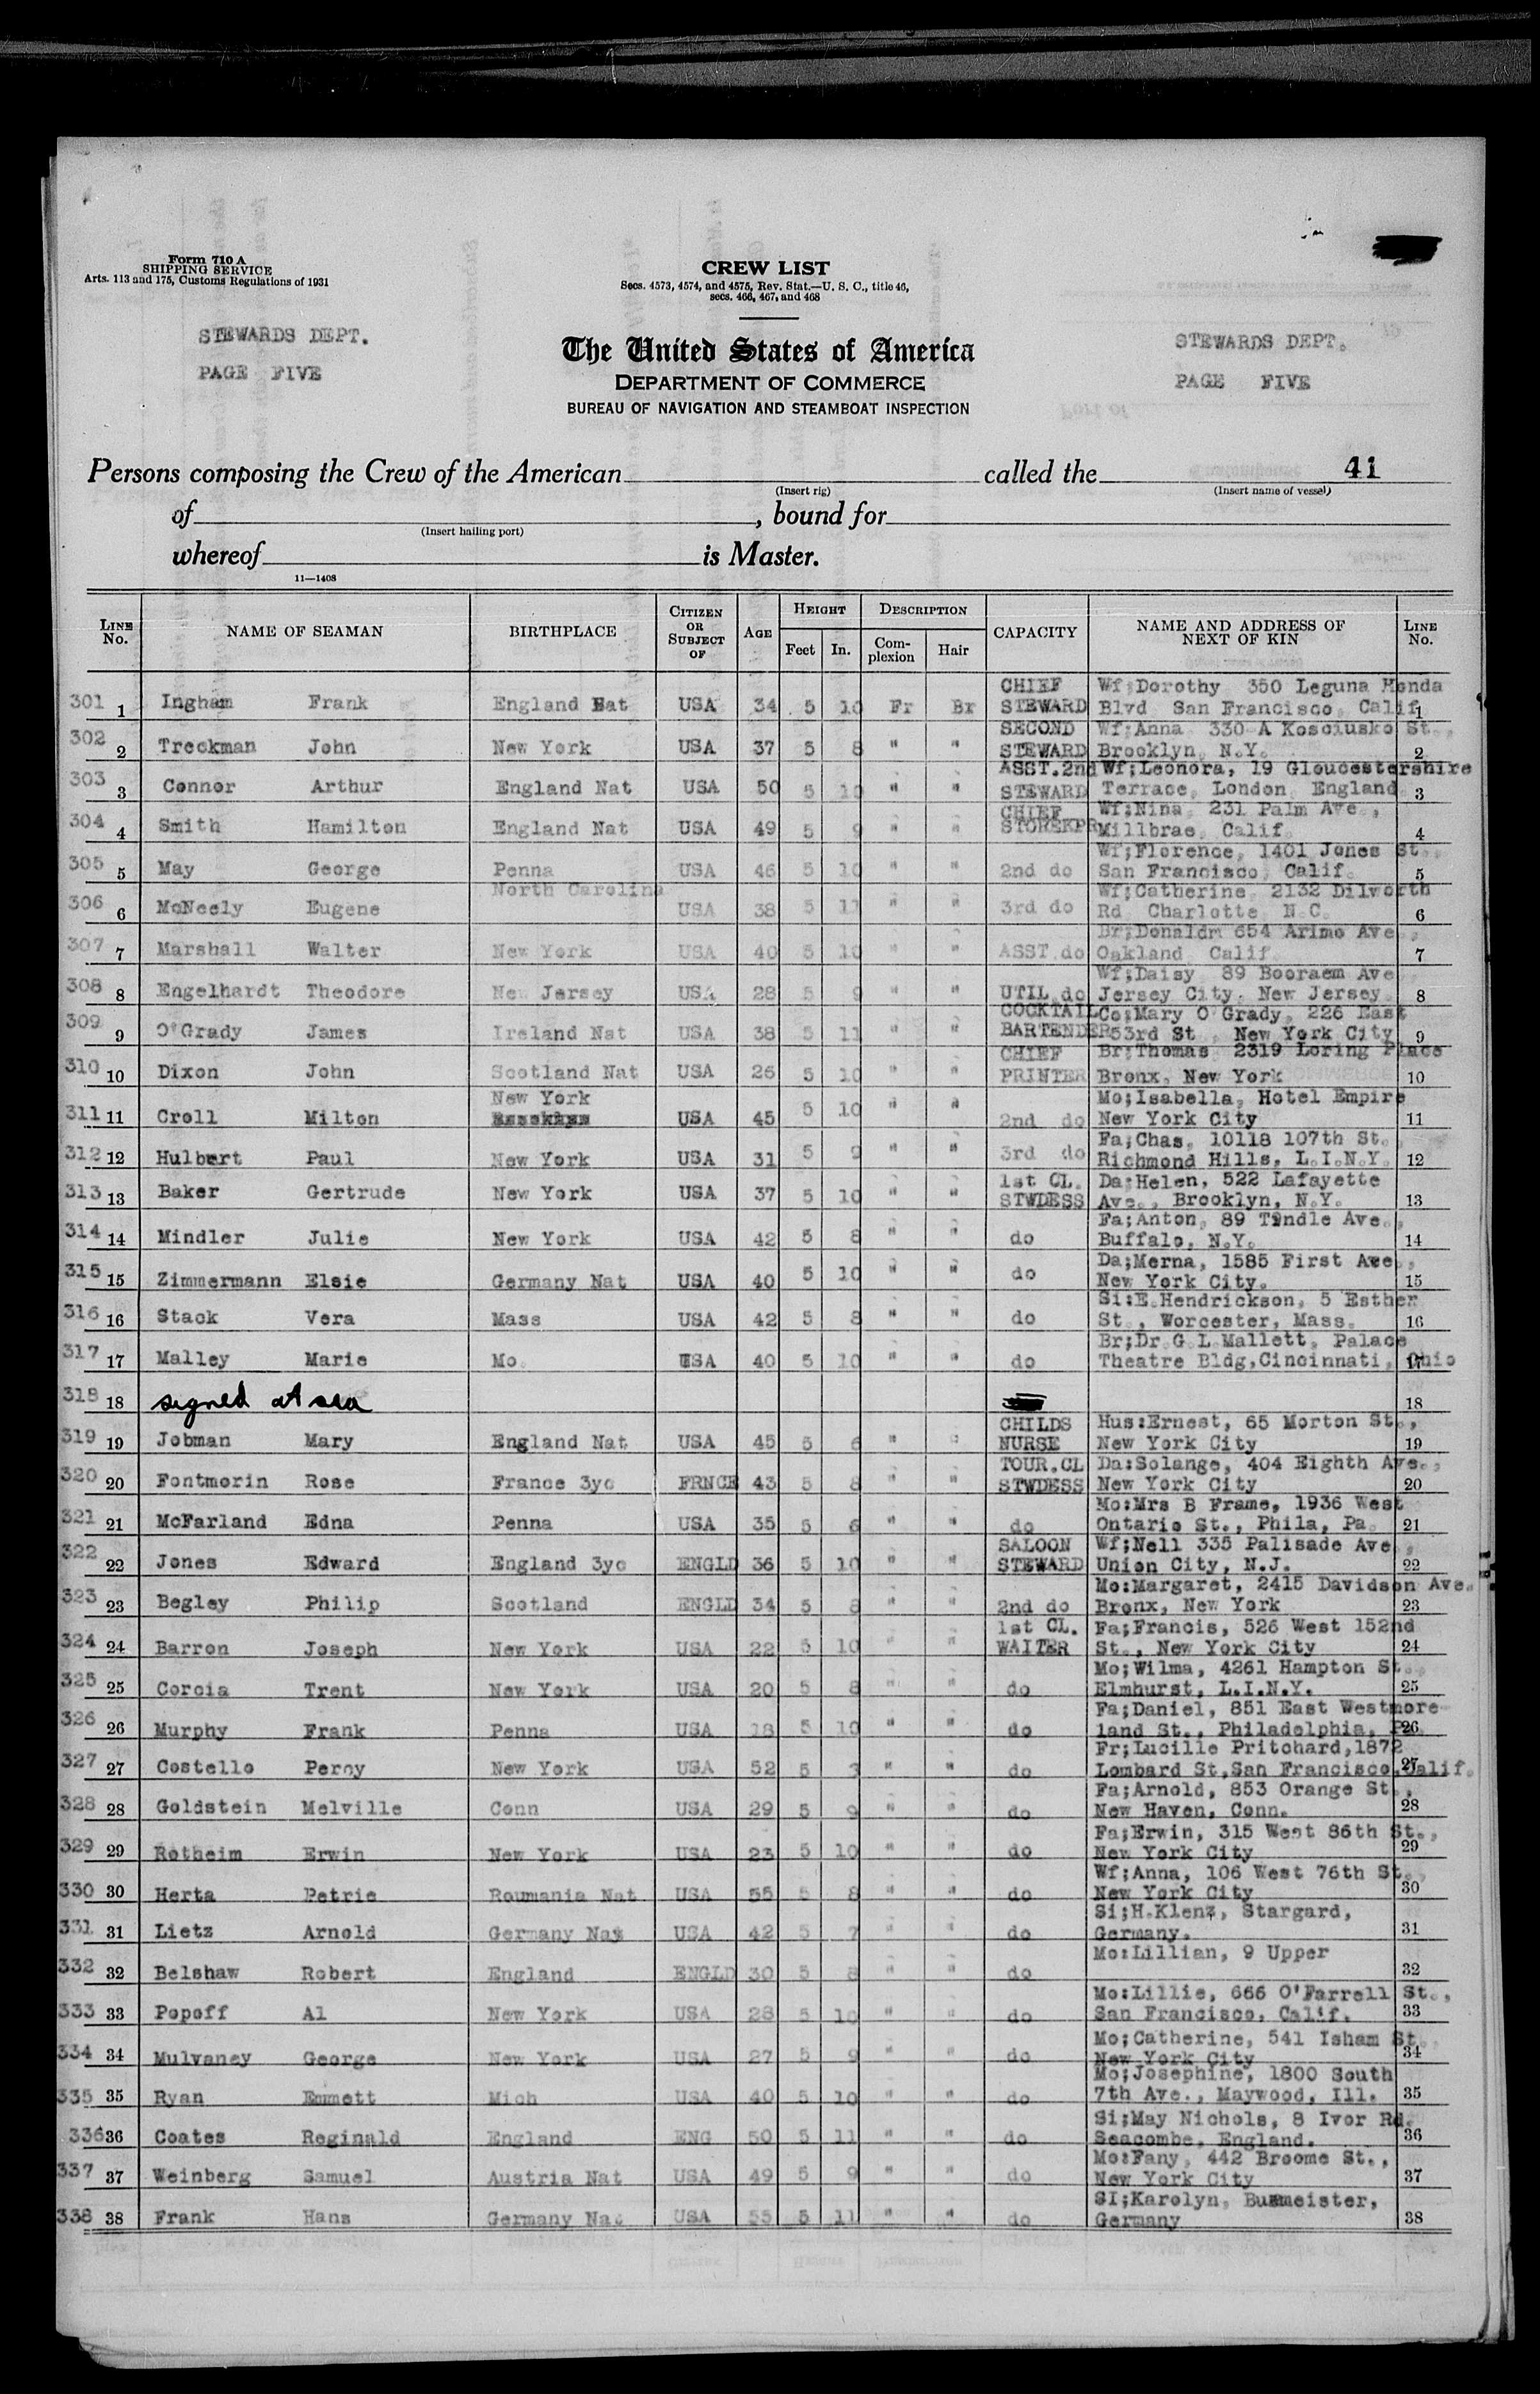 Form 710 A
SHIPPING SERVICE
Arts. 113 and 175, Customs Regulations of 1931
CREW LIST
Secs. 4573, 4574, and 4575, Rev. Stat.—U. S. C., title 46,
secs. 466, 467, and 468
STEWARDS DEPT.
PAGE FIVE
The United States of America
DEPARTMENT OF COMMERCE
BUREAU OF NAVIGATION AND STEAMBOAT INSPECTION
STEWARDS DEPT.
PAGE FIVE
Persons composing the Crew of the American called the 41
(Insert rig) (Insert name of vessel)
of , bound for
(Insert hailing port)
whereof is Master.
11—1408
LINE No. NAME OF SEAMAN BIRTHPLACE CITIZEN OR SUBJECT OF AGE HEIGHT Feet In. DESCRIPTION Complexion Hair CAPACITY NAME AND ADDRESS OF NEXT OF KIN LINE No.
301 1 Ingham Frank England Nat USA 34 5 10 Fr Br CHIEF STEWARD Wf;Dorothy 350 Leguna Honda Blvd San Francisco Calif 1
302 2 Treckman John New York USA 37 5 8 " " SECOND STEWARD Wf;Anna 330 A Kosciusko St., Brooklyn N.Y. 2
303 3 Connor Arthur England Nat USA 50 5 10 " " ASST.2nd STEWARD Wf;Leonora, 19 Gloucestershire Terrace, London England 3
304 4 Smith Hamilton England Nat USA 49 5 9 " " CHIEF STOREKPR Wf;Nina 231 Palm Ave., Millbrae Calif. 4
305 5 May George Penna USA 46 5 10 " " 2nd do Wf;Florence, 1401 Jones St., San Francisco, Calif. 5
306 6 McNeely Eugene North Carolina USA 38 5 11 " " 3rd do Wf;Catherine, 2132 Dilworth Rd Charlotte N.C. 6
307 7 Marshall Walter New York USA 40 5 10 " " ASST.do Br;Donaldm 654 Arimo Ave., Oakland Calif 7
308 8 Engelhardt Theodore New Jersey USA 28 5 9 " " UTIL do Wf;Daisy 89 Booraem Ave Jersey City, New Jersey. 8
309 9 O'Grady James Ireland Nat USA 38 5 11 " " COCKTAIL BARTENDER Co;Mary O Grady, 226 East 53rd St New York City 9
310 10 Dixon John Scotland Nat USA 26 5 10 " " CHIEF PRINTER Br;Thomas 2319 Loring Place Bronx, New York 10
311 11 Croll Milton New York USA 45 5 10 " " 2nd do Mo;Isabella, Hotel Empire New York City 11
312 12 Hulbert Paul New York USA 31 5 9 " " 3rd do Fa;Chas, 10118 107th St., Richmond Hills, L.I.N.Y. 12
313 13 Baker Gertrude New York USA 37 5 10 " " 1st CL. STWDESS Da;Helen, 522 Lafayette Ave., Brooklyn, N.Y. 13
314 14 Mindler Julie New York USA 42 5 8 " " do Fa;Anton, 89 Tindle Ave., Buffalo, N.Y. 14
315 15 Zimmermann Elsie Germany Nat USA 40 5 10 " " do Da;Merna, 1585 First Ave., New York City. 15
316 16 Stack Vera Mass USA 42 5 8 " " do Si:E.Hendrickson, 5 Esther St., Worcester, Mass. 16
317 17 Malley Marie Mo. USA 40 5 10 " " do Br;Dr.G.L.Mallett, Palace Theatre Bldg,Cincinnati, Ohio 17
318 18 signed at sea 18
319 19 Jobman Mary England Nat USA 45 5 6 " " CHILDS NURSE Hus:Ernest, 65 Morton St., New York City 19
320 20 Fontmorin Rose France 3yc FRNCE 43 5 8 " " TOUR.CL STWDESS Da:Solange, 404 Eighth Ave., New York City 20
321 21 McFarland Edna Penna USA 35 5 6 " " do Mo:Mrs B Frame, 1936 West Ontario St., Phila, Pa. 21
322 22 Jones Edward England 3yc ENGLD 36 5 10 " " SALOON STEWARD Wf;Nell 335 Palisade Ave., Union City, N.J. 22
323 23 Begley Philip Scotland ENGLD 34 5 8 " " 2nd do Mo:Margaret, 2415 Davidson Ave. Bronx, New York 23
324 24 Barron Joseph New York USA 22 5 10 " " 1st CL. WAITER Fa;Francis, 526 West 152nd St., New York City 24
325 25 Corcia Trent New York USA 20 5 8 " " do Mo;Wilma, 4261 Hampton St., Elmhurst, L.I.N.Y. 25
326 26 Murphy Frank Penna USA 18 5 10 " " do Fa;Daniel, 851 East Westmoreland St., Philadelphia, Pa. 26
327 27 Costello Percy New York USA 52 5 3 " " do Fr;Lucille Pritchard,1872 Lombard St,San Francisco,Calif. 27
328 28 Goldstein Melville Conn USA 29 5 9 " " do Fa;Arnold, 853 Orange St., New Haven, Conn. 28
329 29 Rotheim Erwin New York USA 23 5 10 " " do Fa;Erwin, 315 West 86th St., New York City 29
330 30 Herta Petrie Roumania Nat USA 55 5 8 " " do Wf;Anna, 106 West 76th St., New York City 30
331 31 Lietz Arnold Germany Nat USA 42 5 7 " " do Si;H.Klenz, Stargard, Germany. 31
332 32 Belshaw Robert England ENGLD 30 5 8 " " do Mo:Lillian, 9 Upper 32
333 33 Popoff Al New York USA 28 5 10 " " do Mo:Lillie, 666 O'Farrell St., San Francisco, Calif. 33
334 34 Mulvaney George New York USA 27 5 9 " " do Mo;Catherine, 541 Isham St. New York City 34
335 35 Ryan Emmett Mich USA 40 5 10 " " do Mo;Josephine, 1800 South 7th Ave., Maywood, Ill. 35
336 36 Coates Reginald England ENG 50 5 11 " " do Si;May Nichols, 8 Ivor Rd. Seacombe, England. 36
337 37 Weinberg Samuel Austria Nat USA 49 5 9 " " do Mo:Fany, 442 Broome St., New York City 37
338 38 Frank Hans Germany Nat USA 55 5 11 " " do SI;Karolyn, Burmeister, Germany 38